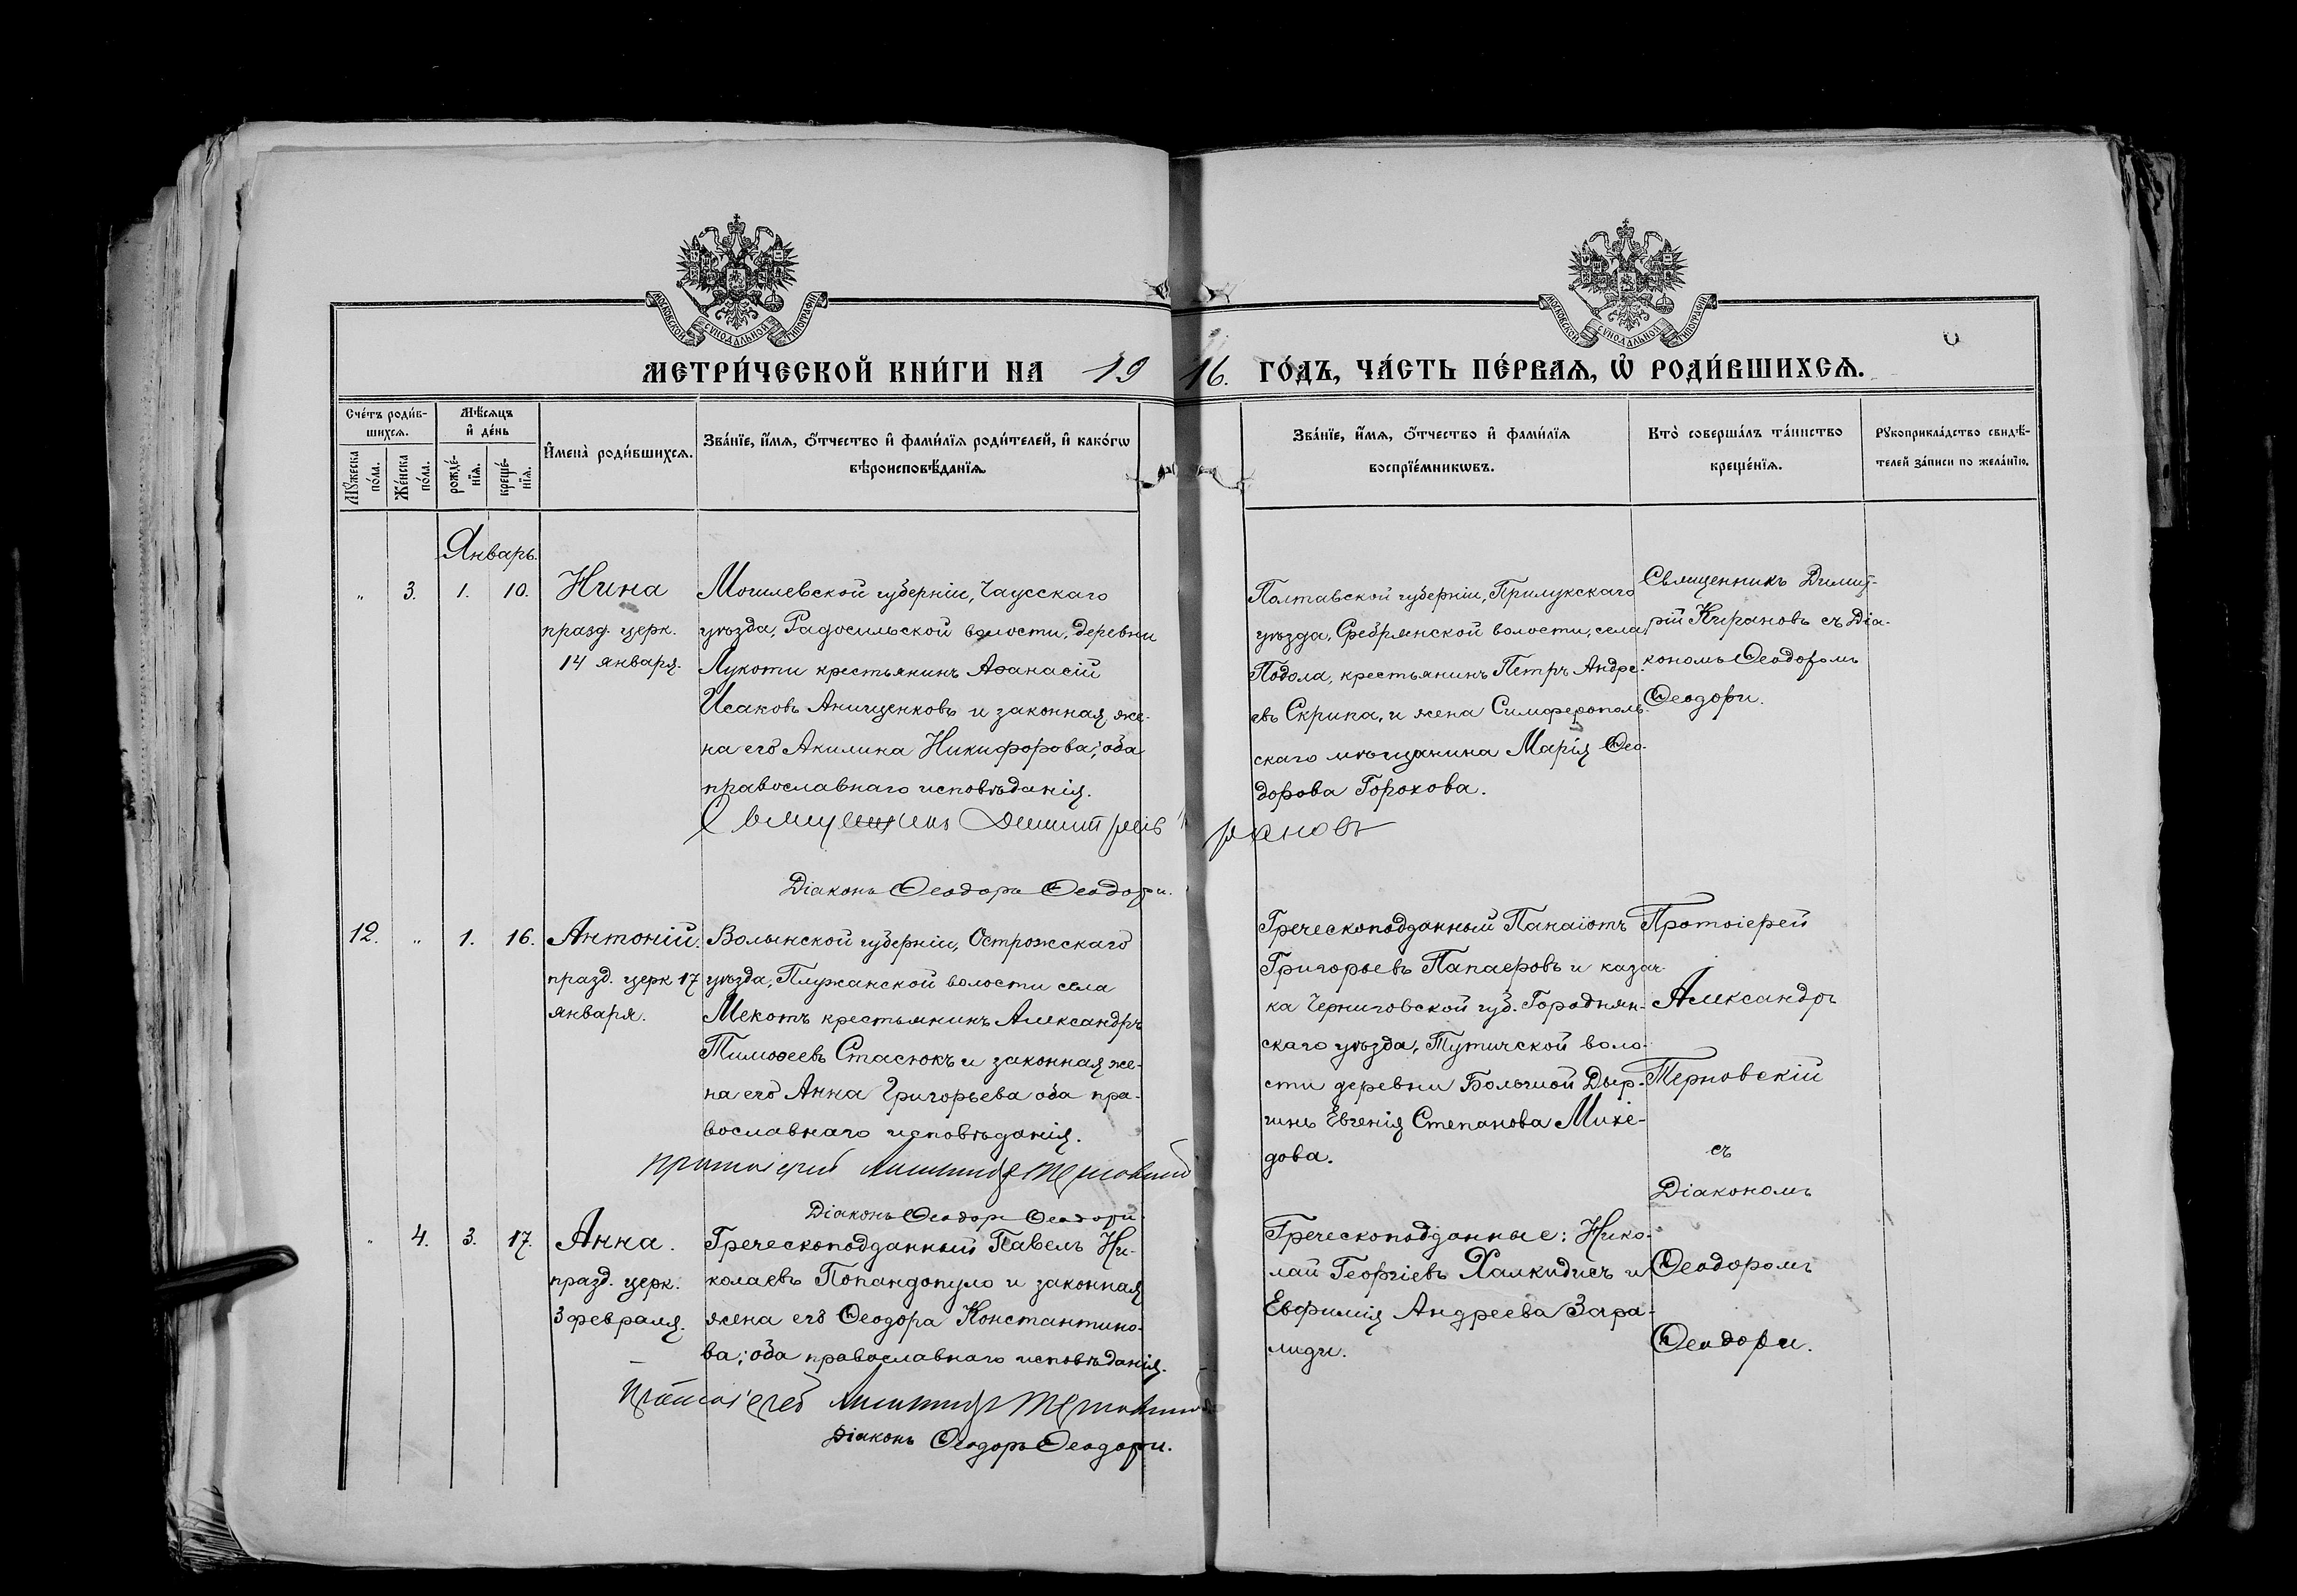 МОСКОВСКОЙ СУНОДАЛЬНОЙ ТИПОГРАФІИ
МОСКОВСКОЙ СУНОДАЛЬНОЙ ТИПОГРАФІИ
МЕТРИ́ЧЕСКОЙ КНИ́ГИ НА 1916. ГО́ДЪ, ЧА́СТЬ ПЕ́РВАѦ, Ѡ҆ РОДИ́ВШИХСѦ.
Сче́тъ роди́в-
шихсѧ.
Мꙋ́жеска
по́ла.
Же́нска
по́ла.
Мѣ́сѧцъ
и҆ де́нь
рожде́-
нїѧ.
креще́-
нїѧ.
И҆мена̀ роди́вшихсѧ.
Зва́нїе, и҆́мѧ, ѻ҆́тчество и҆ фами́лїѧ роди́телей, и҆ како́гѡ
вѣроисповѣ́данїѧ.
Зва́нїе, и҆́мѧ, ѻ҆́тчество и҆ фами́лїѧ
воспрїе́мникѡвъ.
Кто̀ соверша́лъ та́инство
креще́нїѧ.
Рꙋкоприкла́дство свидѣ́-
телей за́писи по жела́нїю.
Январь.
" 3. 1. 10.
Нина
празд. церк.
14 января.
Могилевской губерніи, Чаусскаго
уѣзда, Радосильской волости, деревни
Лукоти крестьянинъ Аѳанасій
Исаковъ Анищенковъ и законная же-
на его Акилина Никифорова; оба
православнаго исповѣданія.
Священникъ Димитрій Кирановъ
Діаконъ Ѳеодоръ Ѳеодори.
Полтавской губерніи, Прилукскаго
уѣзда, Сребрянской волости, села
Подола, крестьянинъ Петръ Андре-
евъ Скрипа, и жена Симферополь-
скаго мѣщанина Марія Ѳео-
дорова Горохова.
Священникъ Димит-
рій Кирановъ съ Діа-
кономъ Ѳеодоромъ
Ѳеодори.
12. " 1. 16.
Антоній.
празд. церк 17
января.
Волынской губерніи, Острожскаго
уѣзда, Плужанской волости села
Мекотъ крестьянинъ Александръ
Тимоѳеевъ Стасюкъ и законная же-
на его Анна Григорьева оба пра-
вославнаго исповѣданія.
Протоіерей Александръ Терновскій
Діаконъ Ѳеодоръ Ѳеодори.
Греческоподданный Панаіотъ
Григорьевъ Папаеровъ и казач-
ка Черниговской губ. Городнян-
скаго уѣзда, Тупичской воло-
сти деревни Большой Дыр-
чинъ Евгенія Степанова Михе-
дова.
Протоіерей
Александръ
Терновскій
съ
Діакономъ
Ѳеодоромъ
Ѳеодори.
" 4. 3. 17.
Анна.
празд. церк.
3 февраля.
Греческоподданный Павелъ Ни-
колаевъ Попандопуло и законная
жена его Ѳеодора Константино-
ва; оба православнаго исповѣданія.
Протоіерей Александръ Терновскій
Діаконъ Ѳеодоръ Ѳеодори.
Греческоподданные: Нико-
лай Георгіевъ Халкидисъ и
Евфимія Андреева Зара-
лиди.